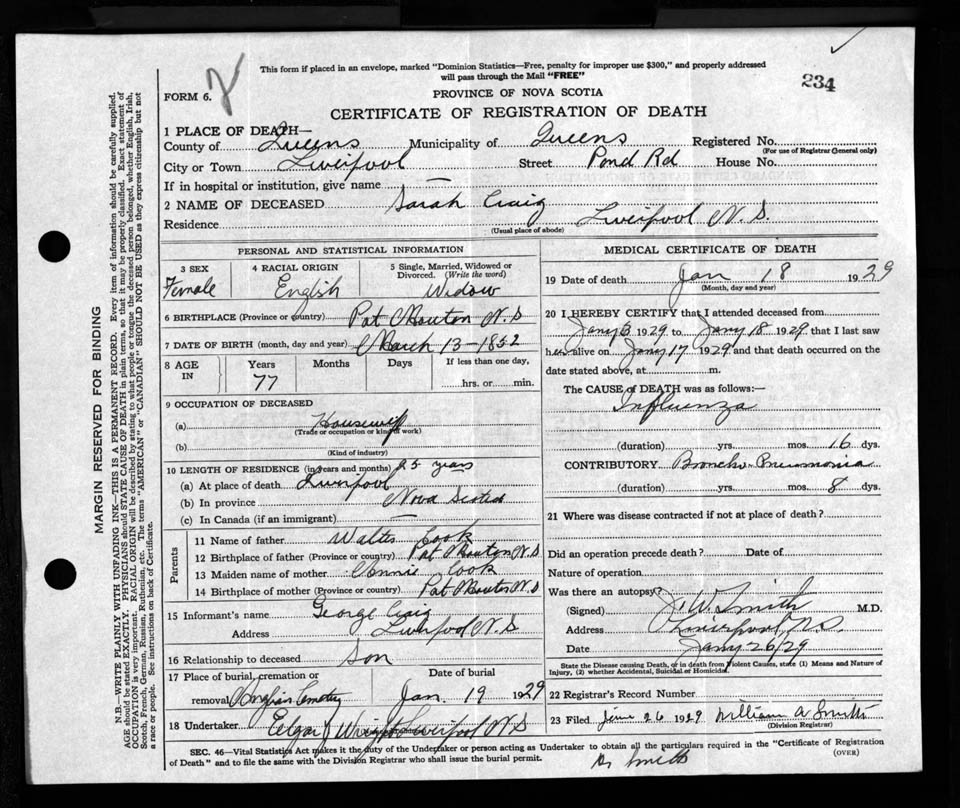 This form if placed in an envelope, marked "Dominion Statistics—Free, penalty for improper use $300," and properly addressed
will pass through the Mail "FREE"
234
FORM 6.
2
PROVINCE OF NOVA SCOTIA
CERTIFICATE OF REGISTRATION OF DEATH
1 PLACE OF DEATH—
County of Queens Municipality of Queens Registered No.
(For use of Registrar General only)
City or Town Liverpool Street Pond Rd House No.
If in hospital or institution, give name —
2 NAME OF DECEASED Sarah Craig
Residence Liverpool N.S.
(Usual place of abode)
PERSONAL AND STATISTICAL INFORMATION
3 SEX
Female
4 RACIAL ORIGIN
English
5 Single, Married, Widowed or
Divorced. (Write the word)
Widow
6 BIRTHPLACE (Province or country) Port Mouton N.S
7 DATE OF BIRTH (month, day and year) March 13-1852
8 AGE
IN
Years
77
Months
Days
If less than one day,
hrs. or min.
9 OCCUPATION OF DECEASED
(a) Housewife
(Trade or occupation or kind of work)
(b)
(Kind of industry)
10 LENGTH OF RESIDENCE (in years and months) 25 years
(a) At place of death Liverpool
(b) In province Nova Scotia
(c) In Canada (if an immigrant) —
Parents
11 Name of father Cook
12 Birthplace of father (Province or country) Port Mouton N.S
13 Maiden name of mother Annie Cook
14 Birthplace of mother (Province or country) Port Mouton N.S
15 Informant's name George Craig
Address Liverpool N.S
16 Relationship to deceased Son
17 Place of burial, cremation or
removal Cemetery
Date of burial
Jan. 19 1929
18 Undertaker Edgar J Wright Liverpool N.S
MEDICAL CERTIFICATE OF DEATH
19 Date of death Jan 18 1929
(Month, day and year)
20 I HEREBY CERTIFY that I attended deceased from
Jany 3 1929 to Jany 18 1929 that I last saw
her alive on Jany 17 1929 and that death occurred on the
date stated above, at m.
The CAUSE of DEATH was as follows:—
Influenza
(duration) yrs. mos. 16 dys.
CONTRIBUTORY Broncho-Pneumonia
(duration) yrs. mos. 8 dys.
21 Where was disease contracted if not at place of death?
Did an operation precede death? Date of
Nature of operation
Was there an autopsy?
(Signed) J. W. Smith M.D.
Address Liverpool N.S
Date Jany 26/29
State the Disease causing Death, or in death from Violent Causes, state (1) Means and Nature of
Injury, and (2) whether Accidental, Suicidal or Homicidal.
22 Registrar's Record Number
23 Filed 26 1929 William A Smith
(Division Registrar)
SEC. 46—Vital Statistics Act makes it the duty of the Undertaker or person acting as Undertaker to obtain all the particulars required in the "Certificate of Registration
of Death" and to file the same with the Division Registrar who shall issue the burial permit.
(OVER)
Dr Smith
MARGIN RESERVED FOR BINDING
N.B.—WRITE PLAINLY WITH UNFADING INK—THIS IS A PERMANENT RECORD. Every item of information should be carefully supplied.
AGE should be stated EXACTLY. PHYSICIANS should STATE CAUSE OF DEATH in plain terms, so that it may be properly classified. Exact statement of
OCCUPATION is very important. RACIAL ORIGIN will be described by stating to what people or tongue the deceased person belonged, whether English, Irish,
Scotch, French, German, Russian, Ruthenian, etc. The terms "AMERICAN" or "CANADIAN" SHOULD NOT BE USED as they express citizenship but not
a race or people. See instructions on back of Certificate.